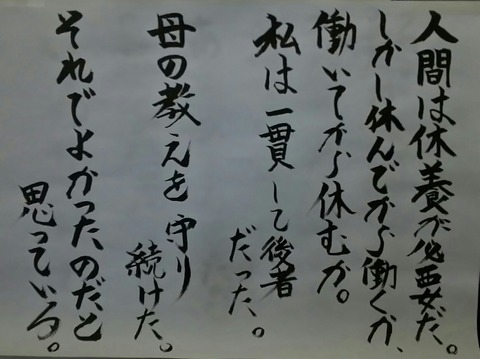 人間は休養が必要だ。
しかし休んでから働くか、
働いてから休むか。
私は一貫して後者
だった。
母の教えを守り
続けた。
それでよかったのだと
思っている。